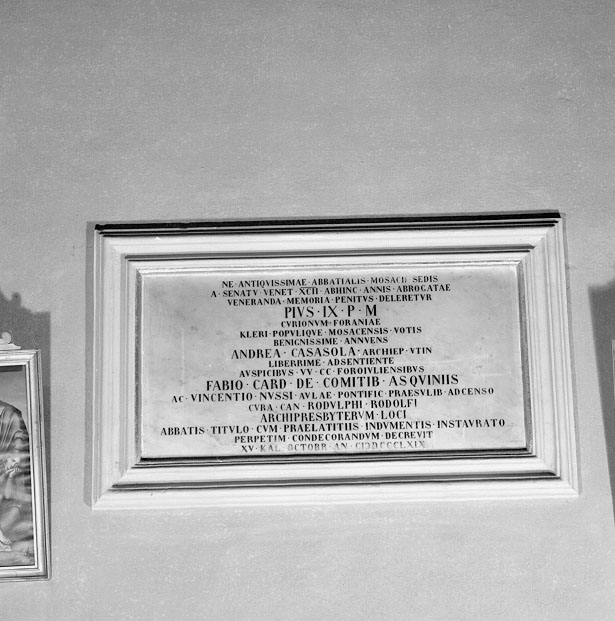 NE · ANTIQVISSIMAE · ABBATIALIS · MOSACII · SEDIS
A · SENATV · VENET · XCII · ABHINC · ANNIS · ABROGATAE
VENERANDA · MEMORIA · PENITVS · DELERETVR
PIVS · IX · P · M
CVRIONVM · FORANIAE
KLERI · POPVLIQVE · MOSACENSIS · VOTIS
BENIGNISSIME · ANNVENS
ANDREA · CASASOLA · ARCHIEP · VTIN
LIBERRIME · ADSENTIENTE
AVSPICIBVS · VV · CC · FOROIVLIENSIBVS
FABIO · CARD · DE · COMITIB · ASQVINIIS
AC · VINCENTIO · NVSSI · AVLAE · PONTIFIC · PRAESVLIB · ADCENSO
CVRA · CAN · RODVLPHI · RODOLFI
ARCHIPRESBYTERVM · LOCI
ABBATIS · TITVLO · CVM · PRAELATITIIS · INDVMENTIS · INSTAVRATO
PERPETIM · CONDECORANDVM · DECREVIT
XV · KAL · OCTOBR · AN · CIƆDCCCLXIX